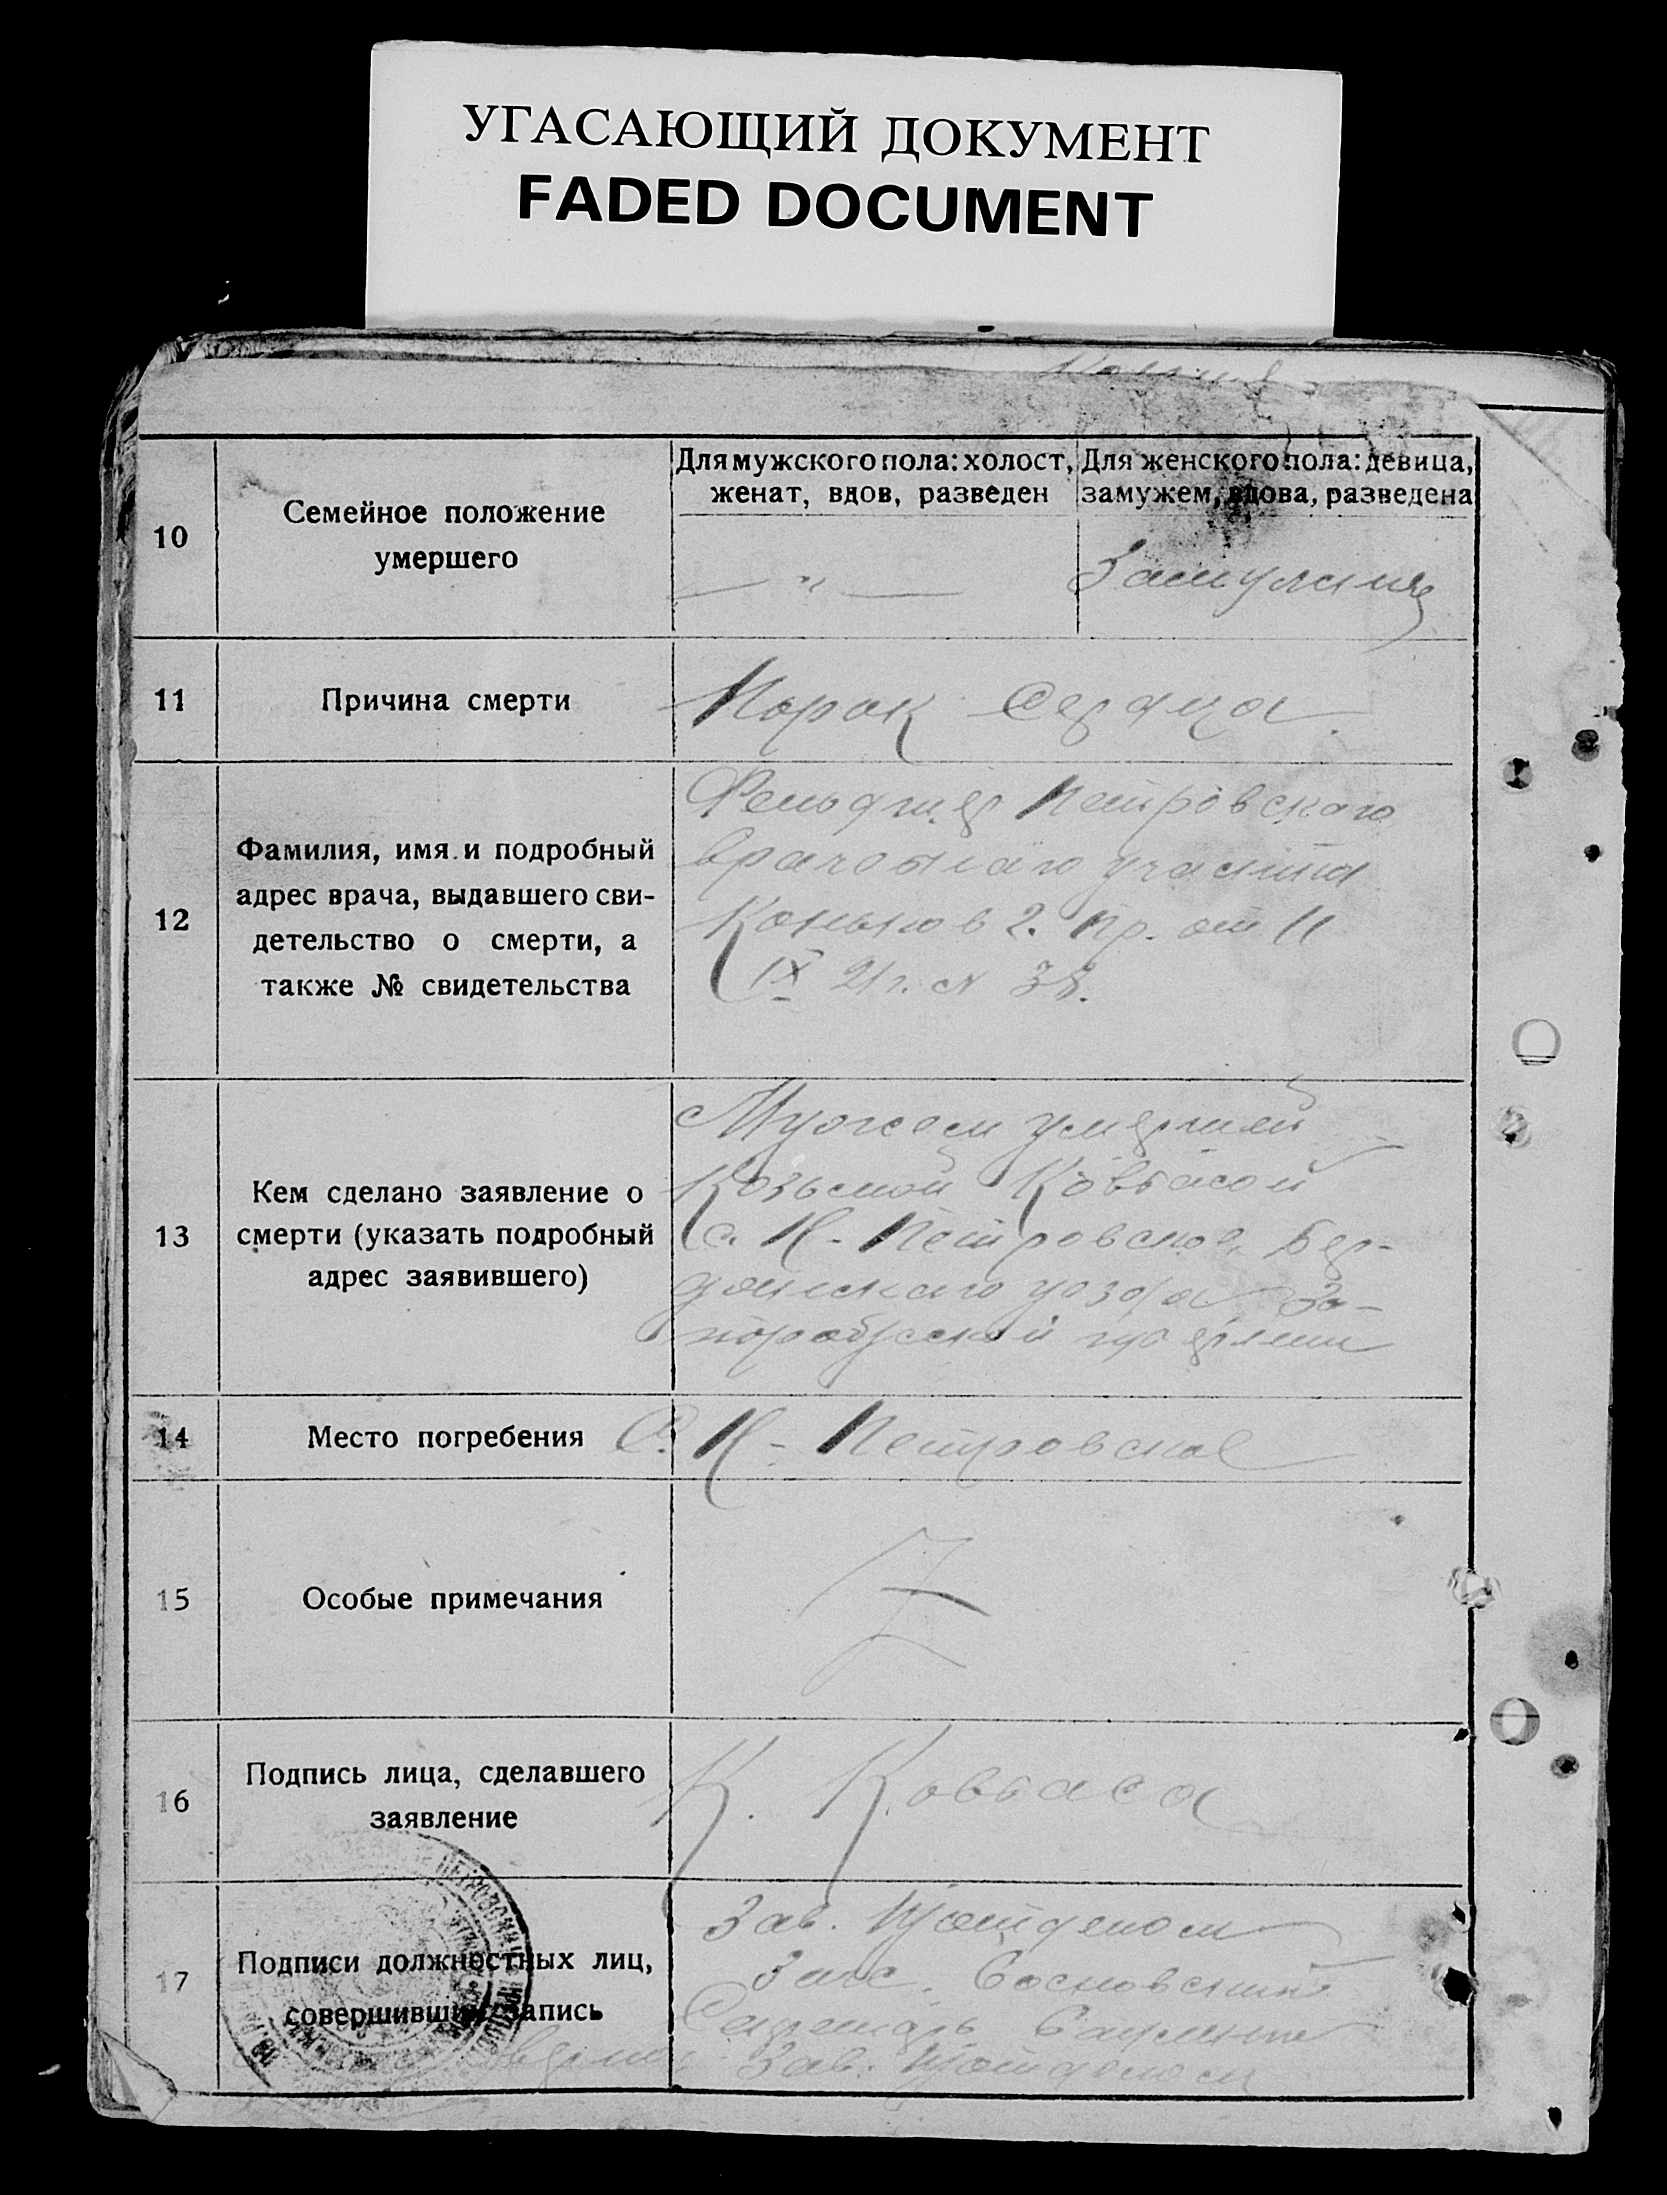 УГАСАЮЩИЙ ДОКУМЕНТ
FADED DOCUMENT
10
Семейное положение
умершего
Для мужского пола: холост,
женат, вдов, разведен
Для женского пола: девица,
замужем, вдова, разведена
— " —
Замужняя
11
Причина смерти
Порок сердца
12
Фамилия, имя и подробный
адрес врача, выдавшего сви-
детельство о смерти, а
также № свидетельства
Фельдшер Петровского
врачебного участка
Коньков 2. Пр. от 11
IX 21 г. N 38.
13
Кем сделано заявление о
смерти (указать подробный
адрес заявившего)
Мужем умершей
Козьмой Ковбасой
с. Н-Петровское, Бер-
дянского уезда За-
порожской губернии
14
Место погребения
С. Н-Петровское
15
Особые примечания
16
Подпись лица, сделавшего
заявление
К. Ковбаса
17
Подписи должностных лиц,
совершивших запись
Зав.
Загс. Сосновский
Секретарь
Зав.